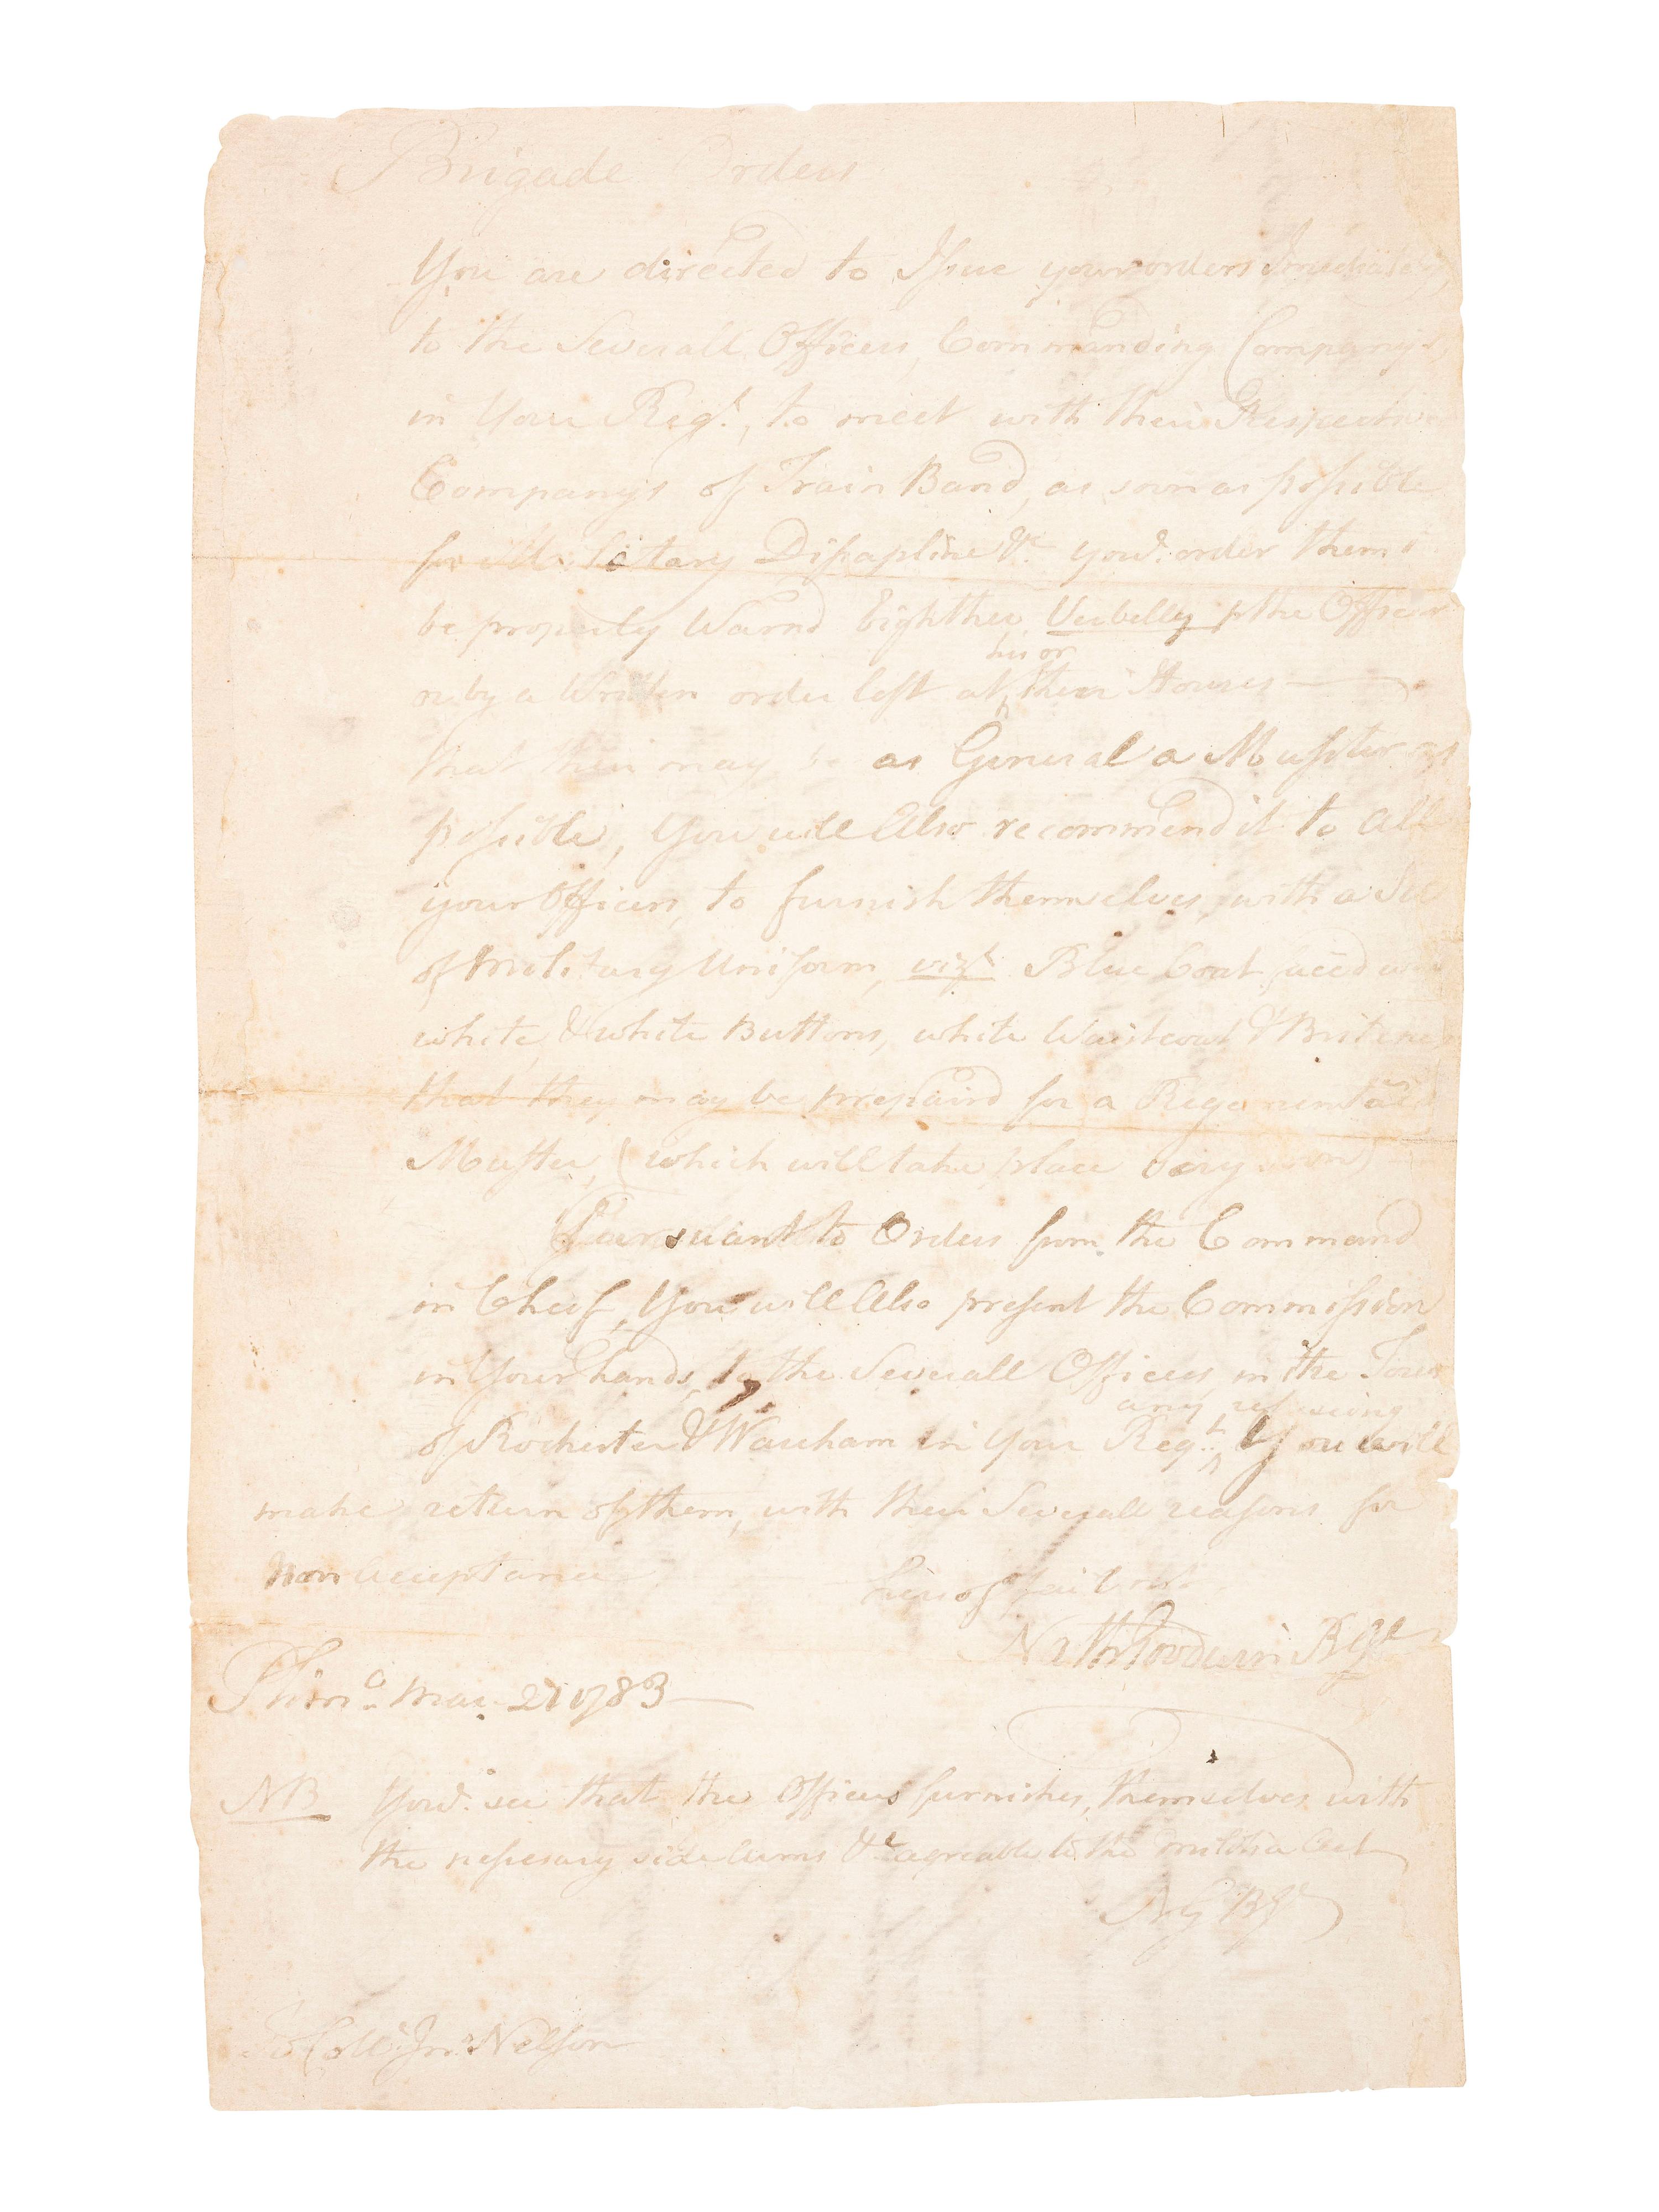 Brigade Orders
You are directed to Issue your orders Imediately
to the Severall Officers, Commanding Companys,
in Your Regt., to meet with their Respective
Companys of Train Band, as soon as possible
for Military Disapline &c. youd. order them
be properly Warnd Eighther Verbelly p the Officer
his or
or by a Written order left at their Houses
that their may be as General a Musster as
possible, You will Also recommend it to all
your Officers, to furnish themselves, with a
of Military Uniform, vizt Blue Coat faced
white, & white Buttons, white Waistcoat &
that they may be prepaird for a
Muster, (which will take place very soon)
Pursuant to Orders from the Command
in Cheif, You will Also present the Commission
in Your hands, to the Severall Officers, in the Town
any refuseing
of Rochester & Wareham in Your Regt. You will
make return of them, with their Severall reasons for
Non acceptance
hereof fail not
Nathl Goodwin B Gl
Plimo. 21 1783
NB Youd. see that the Officers furnishes, themselves with
the nessesary side Arms &c agreable to the militia Act
N G B Gl
To Coll Jno. Nelson